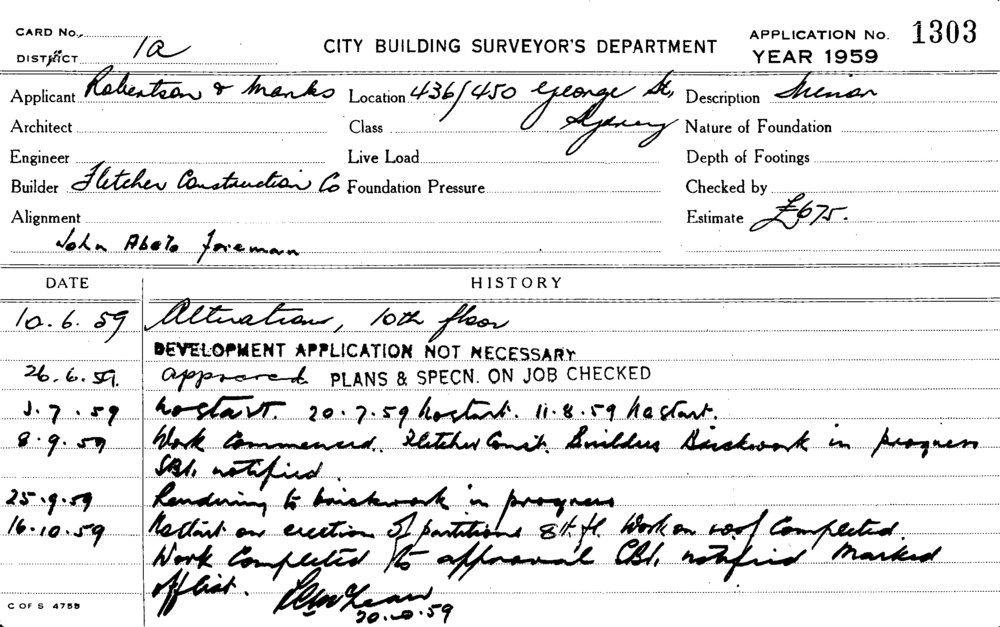 CARD No.
DISTRICT 1a
CITY BUILDING SURVEYOR'S DEPARTMENT
APPLICATION No. 1303
YEAR 1959
Applicant Robertson & Marks Location 436/450 George St, Sydney Description Minor
Architect Class Nature of Foundation
Engineer Live Load Depth of Footings
Builder Fletcher Construction Co Foundation Pressure Checked by
Alignment Estimate £675.
John Foreman
DATE HISTORY
10.6.59 Alterations, 10th floor
DEVELOPMENT APPLICATION NOT NECESSARY
26.6.59. approved PLANS & SPECN. ON JOB CHECKED
3.7.59 No start. 20.7.59 No start. 11.8.59 No start.
8.9.59 Work Commenced. Fletcher Const. Builders Brickwork in progress
notified.
25.9.59 Rendering to brickwork in progress
16.10.59 No start on erection of partitions 8th fl. Work on roof Completed.
Work Completed to approval notified Marked
off list.
20.10.59
C OF S 475B